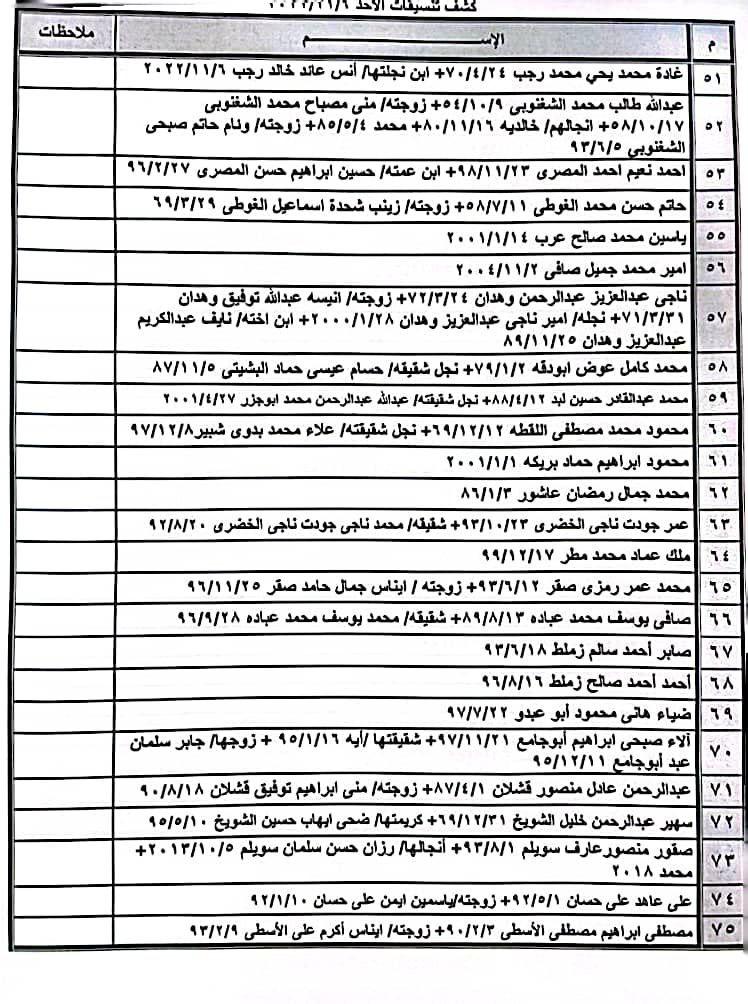 كشف تنسيقات الاحد
م الإســــم ملاحظات
٥١ غادة محمد يحي محمد رجب ٧٠/٤/٢٤+ ابن نجلتها/ أنس عائد خالد رجب ٢٠٢٢/١١/٦
٥٢ عبدالله طالب محمد الشغنوبى ٥٤/١٠/٩+ زوجته/ منى مصباح محمد الشغنوبى
٥٨/١٠/١٧+ انجالهم/ خالديه ٨٠/١١/١٦+ محمد ٨٥/٥/٤+ زوجته/ ونام حاتم صبحى
الشغنوبى ٩٣/٦/٥
٥٣ احمد نعيم احمد المصرى ٩٨/١١/٢٣+ ابن عمته/ حسين ابراهيم حسن المصرى ٩٦/٢/٢٧
٥٤ حاتم حسن محمد الغوطى ٥٨/٧/١١+ زوجته/ زينب شحدة اسماعيل الغوطى ٦٩/٣/٢٩
٥٥ ياسين محمد صالح عرب ٢٠٠١/١/١٤
٥٦ امير محمد جميل صافى ٢٠٠٤/١١/٢
٥٧ ناجى عبدالعزيز عبدالرحمن وهدان ٧٢/٣/٢٤+ زوجته/ انيسه عبدالله توفيق وهدان
٧١/٣/٣١+ نجله/ امير ناجى عبدالعزيز وهدان ٢٠٠٠/١/٢٨+ ابن اخته/ نايف عبدالكريم
عبدالعزيز وهدان ٨٩/١١/٢٥
٥٨ محمد كامل عوض ابودقه ٧٩/١/٢+ نجل شقيقه/ حسام عيسى حماد البشيتى ٨٧/١١/٥
٥٩ محمد عبدالقادر حسين لبد ٨٨/٤/١٢+ نجل شقيقته/ عبدالله عبدالرحمن محمد ابوجزر ٢٠٠١/٤/٢٧
٦٠ محمود محمد مصطفى اللقطه ٦٩/١٢/١٢+ نجل شقيقته/ علاء محمد بدوى شبير٩٧/١٢/٨
٦١ محمود ابراهيم حماد بريكه ٢٠٠١/١/١
٦٢ محمد جمال رمضان عاشور ٨٦/١/٣
٦٣ عمر جودت ناجى الخضرى ٩٣/١٠/٢٣+ شقيقه/ محمد ناجى جودت ناجى الخضرى ٩٢/٨/٢٠
٦٤ ملك عماد محمد مطر ٩٩/١٢/١٧
٦٥ محمد عمر رمزى صقر ٩٣/٦/١٢+ زوجته / ايناس جمال حامد صقر ٩٦/١١/٢٥
٦٦ صافى يوسف محمد عباده ٨٩/٨/١٣+ شقيقه/ محمد يوسف محمد عباده ٩٦/٩/٢٨
٦٧ صابر أحمد سالم زملط ٩٣/٦/١٨
٦٨ أحمد أحمد صالح زملط ٩٦/٨/١٦
٦٩ ضياء هانى محمود أبو عبدو ٩٧/٧/٢٢
٧٠ آلاء صبحى ابراهيم أبوجامع ٩٧/١١/٢١+ شقيقتها /أيه ٩٥/١/١٦ + زوجها/ جابر سلمان
عبد أبوجامع ٩٥/١٢/١١
٧١ عبدالرحمن عادل منصور قشلان ٨٧/٤/١+ زوجته/ منى ابراهيم توفيق قشلان ٩٠/٨/١٨
٧٢ سهير عبدالرحمن خليل الشويخ ٦٩/١٢/٣١+ كريمتها/ ضحى ايهاب حسين الشويخ ٩٥/٥/١٠
٧٣ صقور منصورعارف سويلم ٩٣/٨/١+ أنجالها/ رزان حسن سلمان سويلم ٢٠١٣/١٠/٥+
محمد ٢٠١٨
٧٤ على عاهد على حسان ٩٢/٥/١+ زوجته/ياسمين ايمن على حسان ٩٢/١/١٠
٧٥ مصطفى ابراهيم مصطفى الأسطى ٩٠/٢/٣+ زوجته/ ايناس أكرم على الأسطى ٩٣/٢/٩